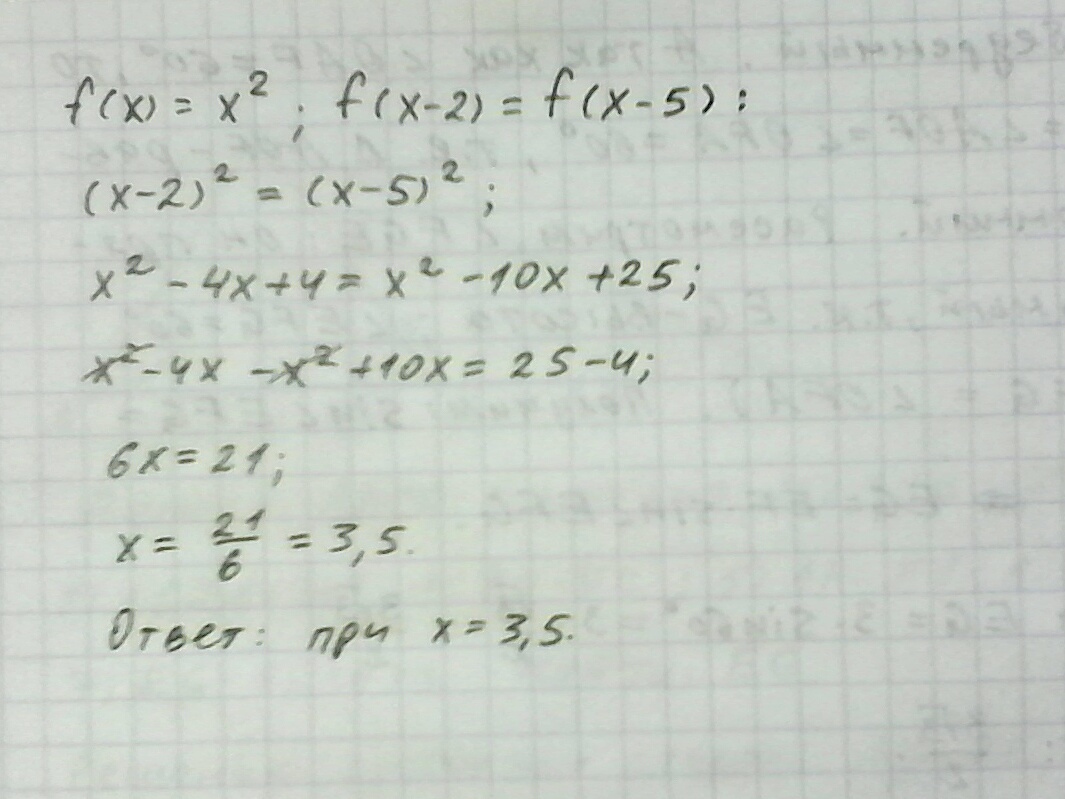 f(x) = x²; f(x-2) = f(x-5):
(x-2)² = (x-5)²;
x² - 4x + 4 = x² - 10x + 25;
x² - 4x - x² + 10x = 25 - 4;
6x = 21;
x = 21/6 = 3,5.
Ответ: при x = 3,5.